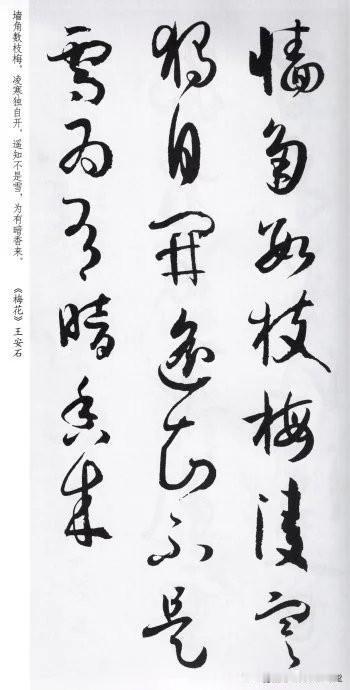 墙角数枝梅凌寒
独自开遥知不是
雪为有暗香来
墙角数枝梅，凌寒独自开，遥知不是雪，为有暗香来。
《梅花》王安石